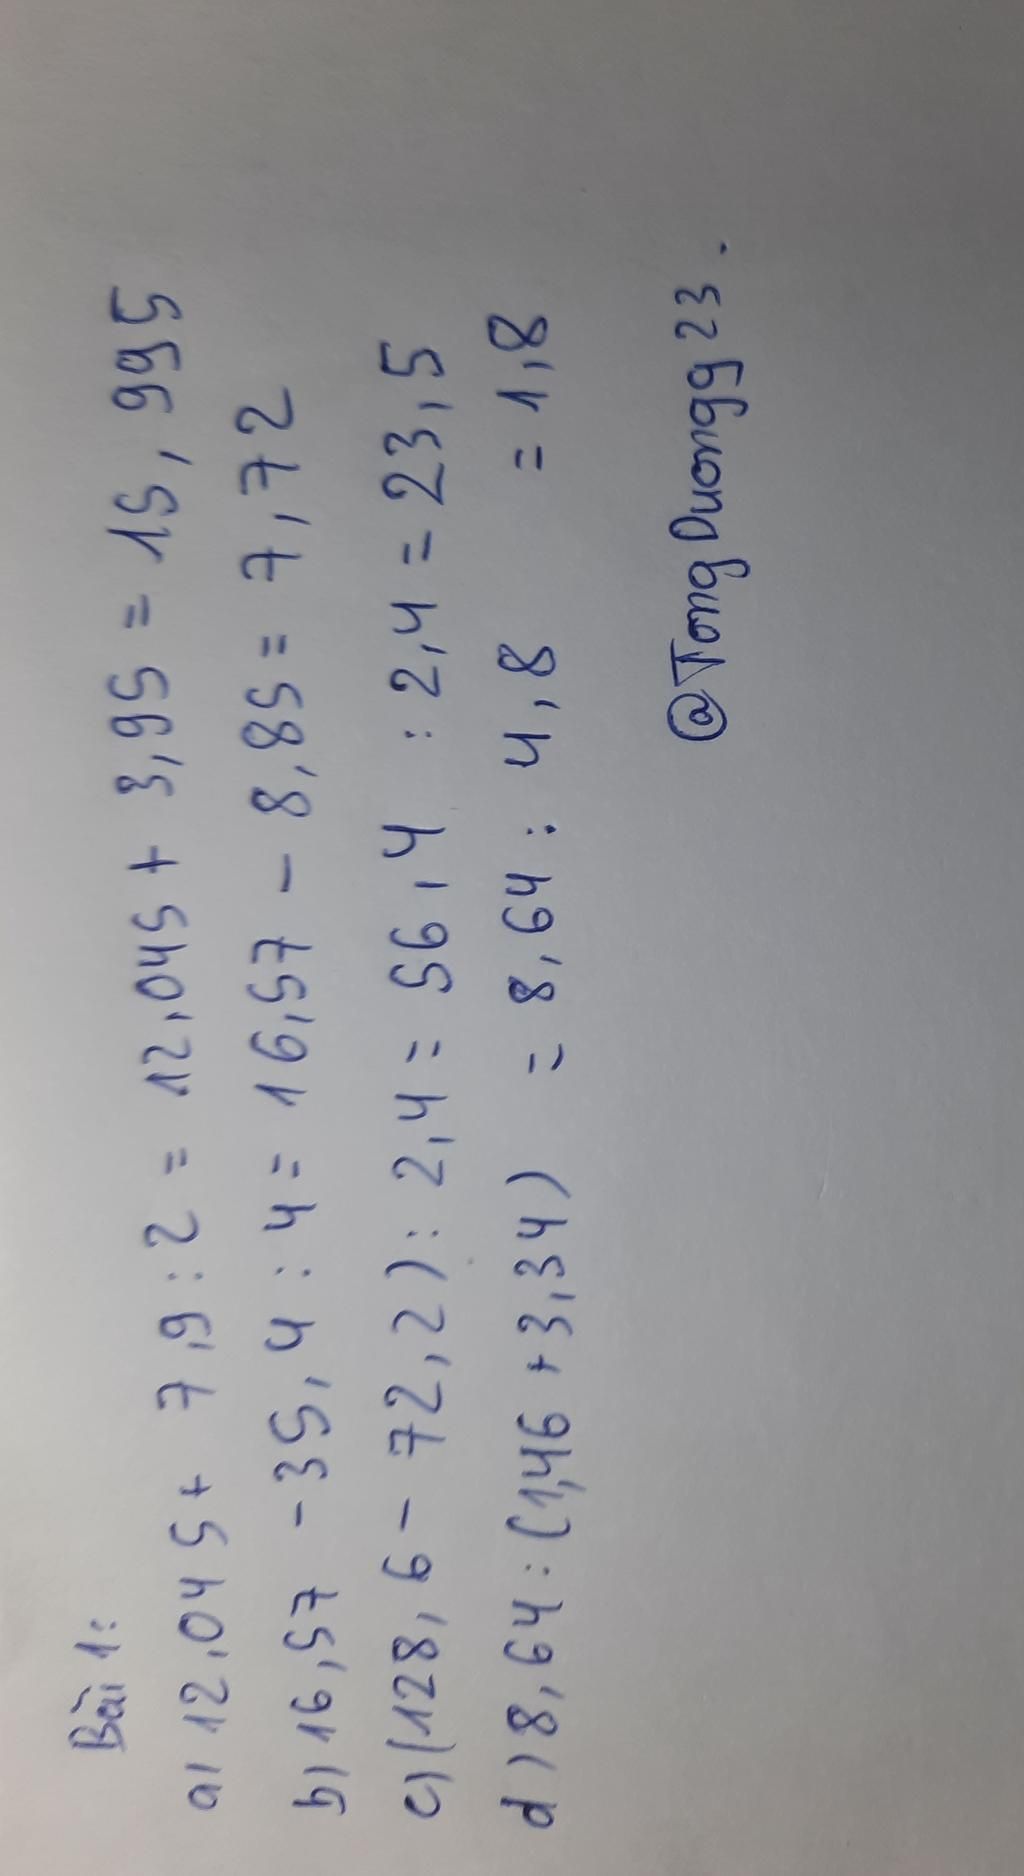 Bài 1:
a) 12,045 + 7,9 : 2 = 12,045 + 3,95 = 15,995
b) 16,57 - 35,4 : 4 = 16,57 - 8,85 = 7,72
c) (128,6 - 72,2) : 2,4 = 56,4 : 2,4 = 23,5
d) 8,64 : (1,46 + 3,34) = 8,64 : 4,8 = 1,8
@TongDuongg23.